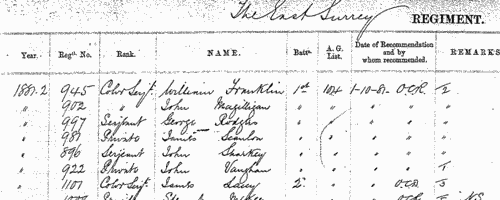 The East Surrey REGIMENT.
Year. Regtl. No. Rank. NAME. Battn. A. G. List. Date of Recommendation and by whom recommended. REMARKS
1881-2 945 Color Serjt. William Franklin 1st 104 1-10-81 O.C.R. 1/2
" 902 " John Magilligan " " " " "
" 997 Serjeant George Rodgers " " " " "
" 987 Private James Scanlon " " " " "
" 896 Serjeant John Sharkey " " " " "
" 922 Private John Vaughan " " " " 1
" 1101 Color Serjt. James Lacey 2 " " O.C.R. 3